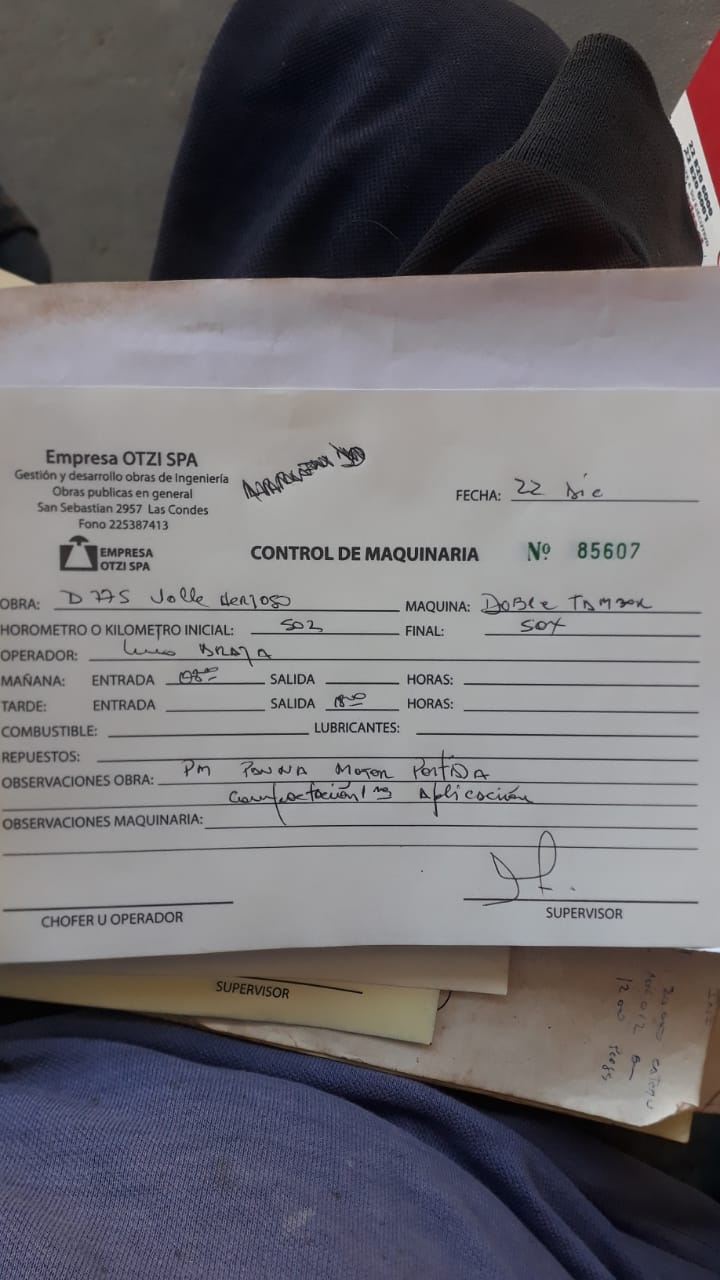 Empresa OTZI SPA
Gestión y desarrollo obras de Ingeniería
Obras publicas en general
San Sebastian 2957 Las Condes
Fono 225387413
EMPRESA
OTZI SPA
FECHA: 22 Dic
CONTROL DE MAQUINARIA Nº 85607
OBRA: D 775 Valle Hermoso MAQUINA: Doble Tambor
HOROMETRO O KILOMETRO INICIAL: 502 FINAL: 507
OPERADOR: Luis
MAÑANA: ENTRADA 08:00 SALIDA HORAS:
TARDE: ENTRADA SALIDA 18:00 HORAS:
COMBUSTIBLE: LUBRICANTES:
REPUESTOS:
OBSERVACIONES OBRA: PM Panna Motor Partida
Compactación 1ra Aplicación
OBSERVACIONES MAQUINARIA:
CHOFER U OPERADOR SUPERVISOR
SUPERVISOR